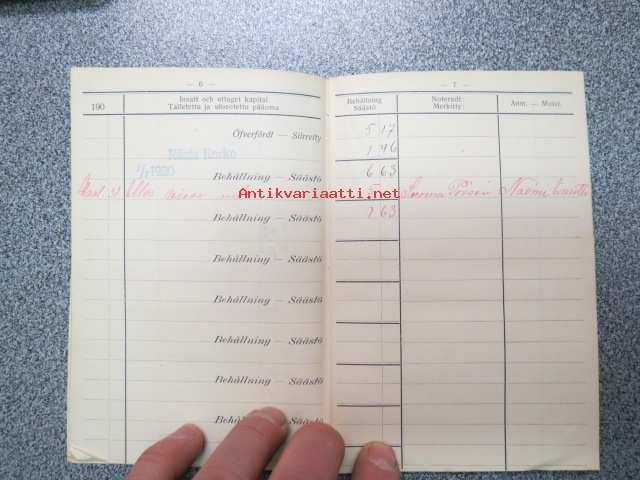 — 6 —
190 Insatt och uttaget kapital
Talletettu ja ulosotettu pääoma
Öfverfördt — Siirretty
Ränta Korko
1/1 1920
Behållning — Säästö
Behållning — Säästö
Behållning — Säästö
Behållning — Säästö
Behållning — Säästö
Behållning — Säästö
Behållning — Säästö
— 7 —
Behållning
Säästö
Noteradt:
Merkitty:
Anm. — Muist.
5 17
1 46
6 63
Antikvariaatti.net
2 63